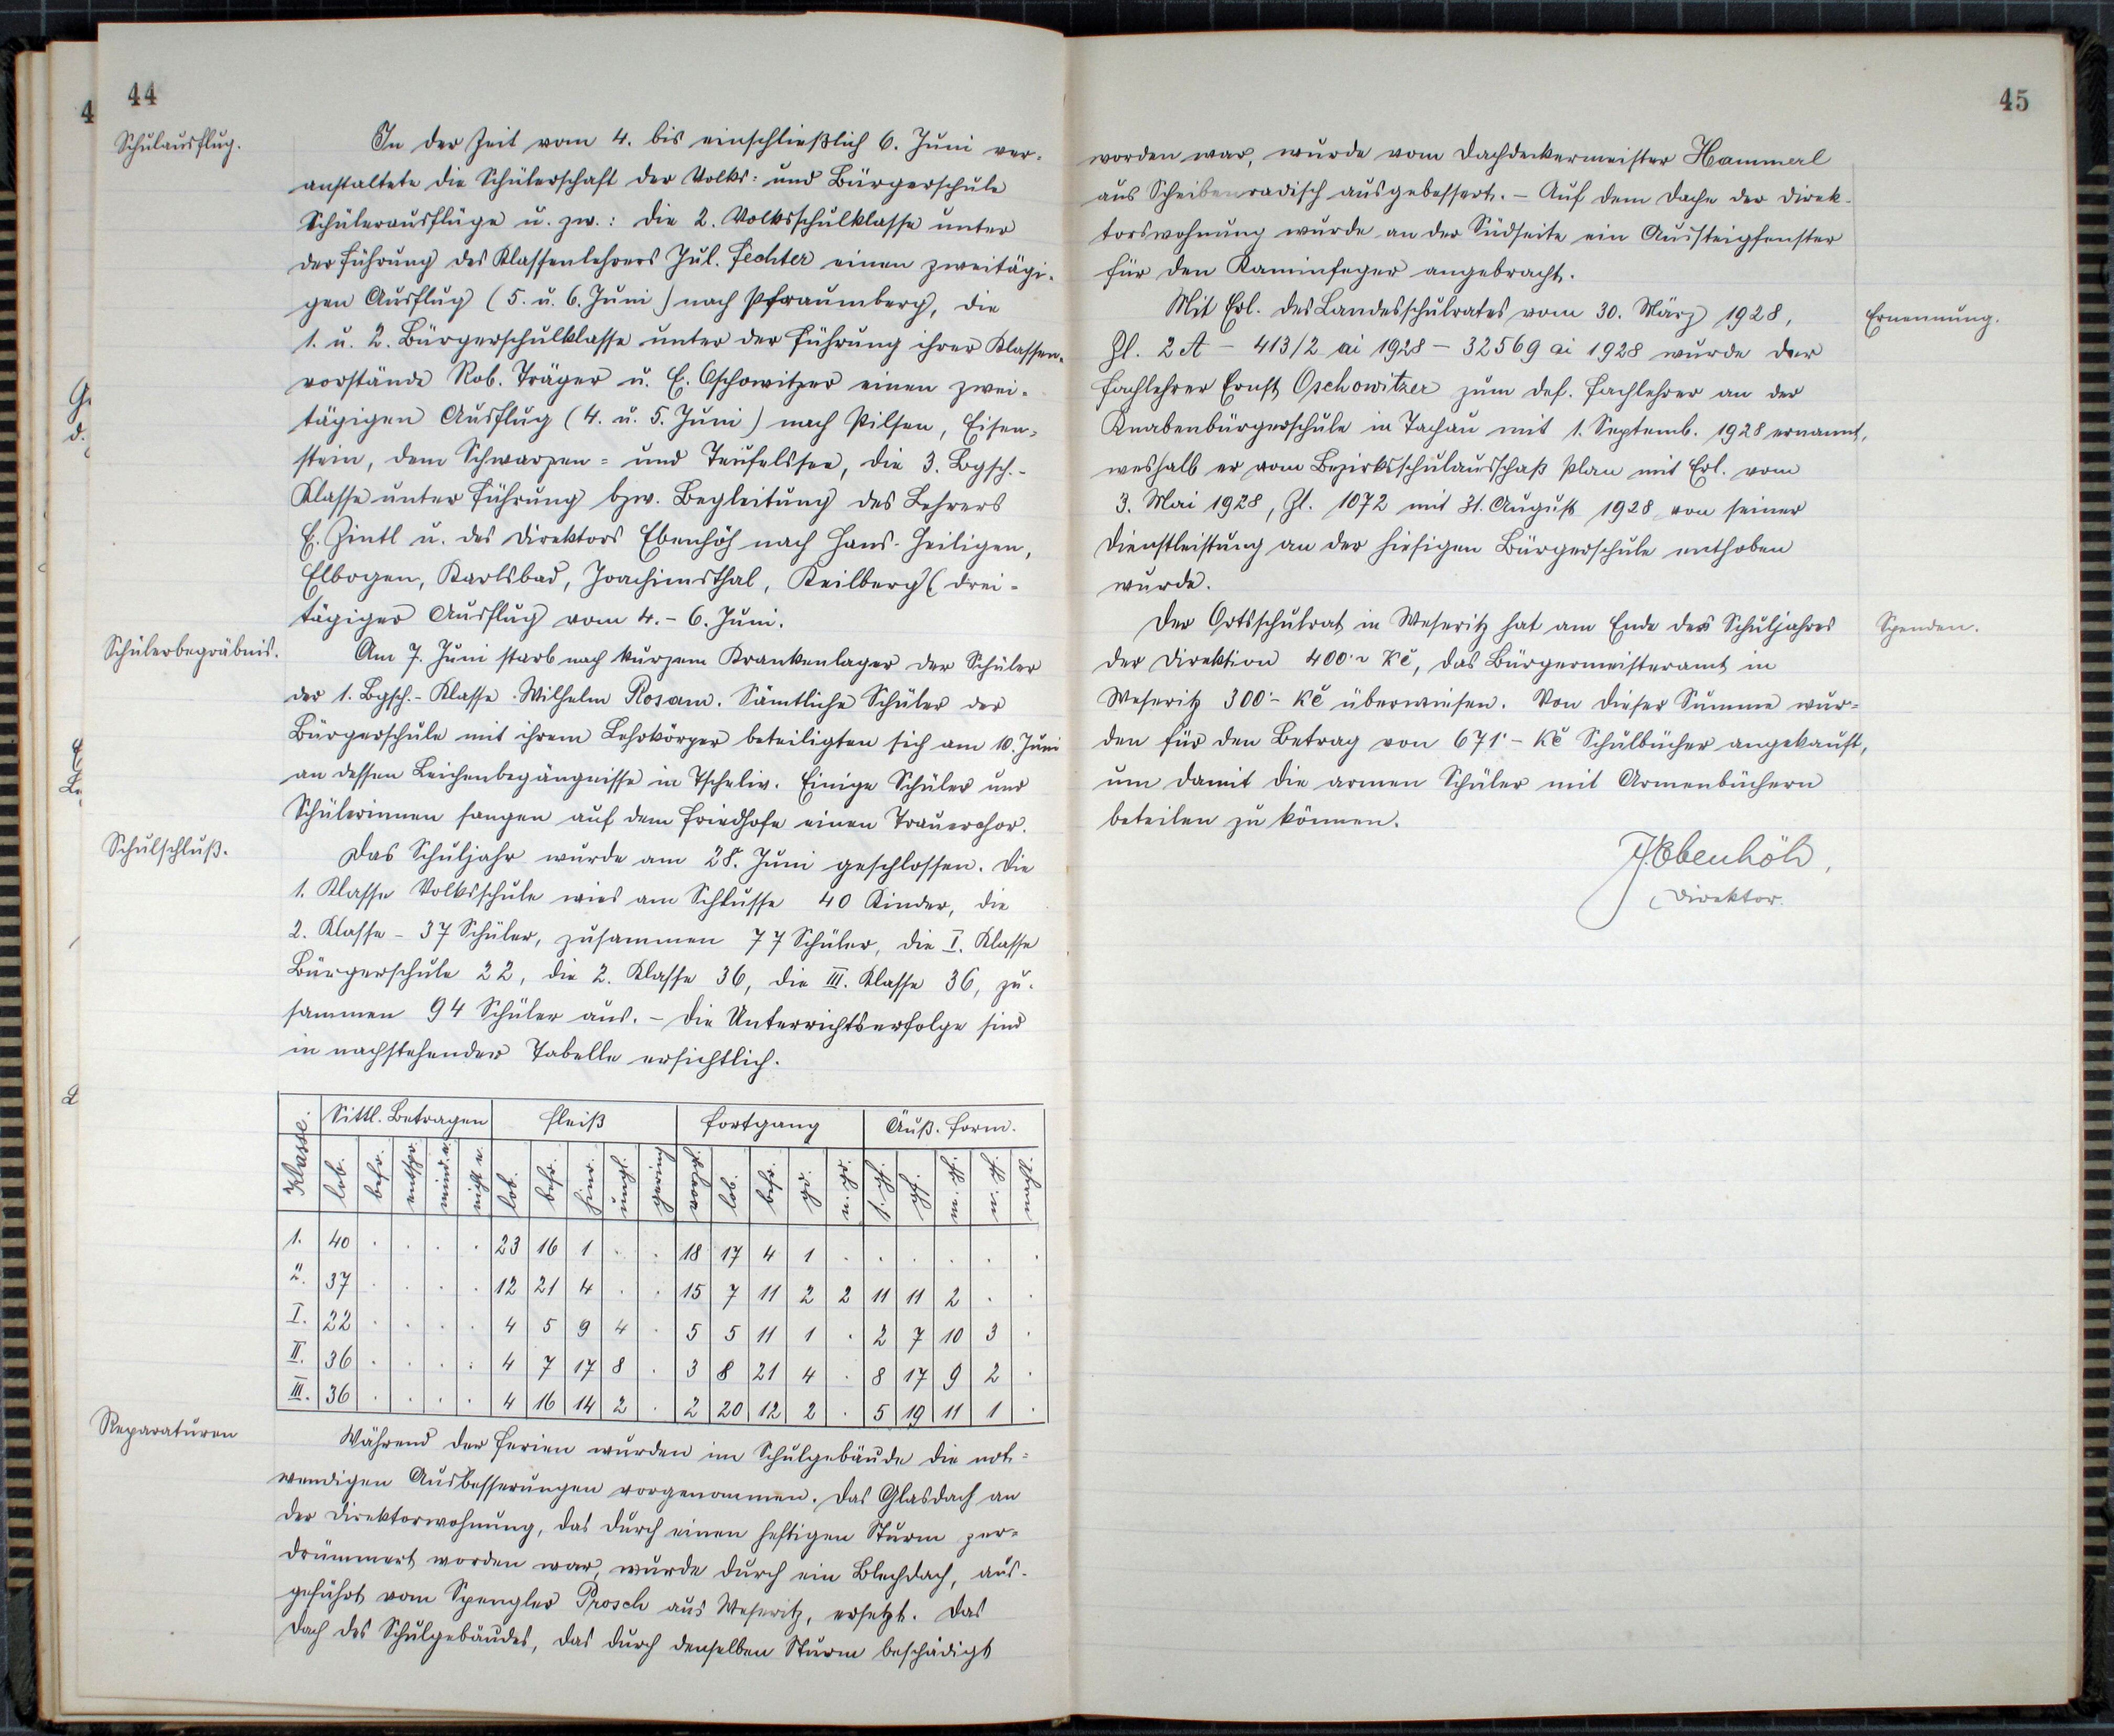 44
Schulausflug.
In der Zeit vom 4. bis einschließlich 6. Juni ver-
anstaltete die Schülerschaft der Volks- und Bürgerschule
Schülerausflüge u. zw.: die 2. Volksschulklasse unter
der Führung des Klassenlehrers Jul. Fechter einen zweitägi-
gen Ausflug (5. u. 6. Juni) nach Pfraumberg, die
1. u. 2. Bürgerschulklasse unter der Führung ihrer Klassen-
vorstände Rob. Träger u. E. Oschowitzer einen zwei-
tägigen Ausflug (4. u. 5. Juni) nach Pilsen, Eisen-
stein, dem Schwarzen- und Teufelssee, die 3. Bgsch.-
Klasse unter Führung bzw. Begleitung des Lehrers
E. Zintl u. des Direktors Ebenhöh nach Hans-Heiligen,
Elbogen, Karlsbad, Joachimsthal, Keilberg (drei-
tägiger Ausflug vom 4.-6. Juni.
Schülerbegräbnis.
Am 7. Juni starb nach kurzem Krankenlager der Schüler
der 1. Bgsch.-Klasse Wilhelm Rosam. Sämtliche Schüler der
Bürgerschule mit ihrem Lehrkörper beteiligten sich am 10. Juni
an dessen Leichenbegängnisse in Tscheliv. Einige Schüler und
Schülerinnen sangen auf dem Friedhofe einen Trauerchor.
Schulschluß.
Das Schuljahr wurde am 28. Juni geschlossen. Die
1. Klasse Volksschule wies am Schlusse 40 Kinder, die
2. Klasse - 37 Schüler, zusammen 77 Schüler, die I. Klasse
Bürgerschule 22, die 2. Klasse 36, die III. Klasse 36, zu-
sammen 94 Schüler aus. - Die Unterrichtserfolge sind
in nachstehender Tabelle ersichtlich.
Klasse. Sittl. Betragen Fleiß Fortgang Äuß. Form.
lob. befr. entspr. mind. e. nicht e. lob. befr. hinr. ungl. gering vorzgl. lob. befr. gd. n. gd. s. gf. gf. m. gf. n. gf. nachl.
1. 40 . . . . 23 16 1 . . 18 17 4 1 . . . . . .
2. 37 . . . . 12 21 4 . . 15 7 11 2 2 11 11 2 . .
I. 22 . . . . 4 5 9 4 . 5 5 11 1 . 2 7 10 3 .
II. 36 . . . . 4 7 17 8 . 3 8 21 4 . 8 17 9 2 .
III. 36 . . . . 4 16 14 2 . 2 20 12 2 . 5 19 11 1 .
Reparaturen
Während der Ferien wurden im Schulgebäude die not-
wendigen Ausbesserungen vorgenommen. Das Glasdach an
der Direktorwohnung, das durch einen heftigen Sturm zer-
drümmert worden war, wurde durch ein Blechdach, aus-
geführt vom Spengler Prosch aus Weseritz, ersetzt. Das
Dach des Schulgebäudes, das durch denselben Sturm beschädigt
45
worden war, wurde vom Dachdeckermeister Hammerl
aus Scheibenradisch ausgebessert. - Auf dem Dache der Direk-
torswohnung wurde an der Südseite ein Aussteigfenster
für den Kaminfeger angebracht.
Ernennung.
Mit Erl. des Landesschulrates vom 30. März 1928,
Zl. 2 A - 413/2 ai 1928 - 32569 ai 1928 wurde der
Fachlehrer Ernst Oschowitzer zum def. Fachlehrer an der
Knabenbürgerschule in Tachau mit 1. Septemb. 1928 ernannt,
weshalb er vom Bezirksschulausschuß Plan mit Erl. vom
3. Mai 1928, Zl. 1072 mit 31. August 1928 von seiner
Dienstleistung an der hiesigen Bürgerschule enthoben
wurde.
Spenden.
Der Ortsschulrat in Weseritz hat am Ende des Schuljahres
der Direktion 400·- Kč, das Bürgermeisteramt in
Weseritz 300·- Kč überwiesen. Von dieser Summe wur-
den für den Betrag von 671·- Kč Schulbücher angekauft,
um damit die armen Schüler mit Armenbüchern
beteilen zu können.
J. Ebenhöh,
Direktor.